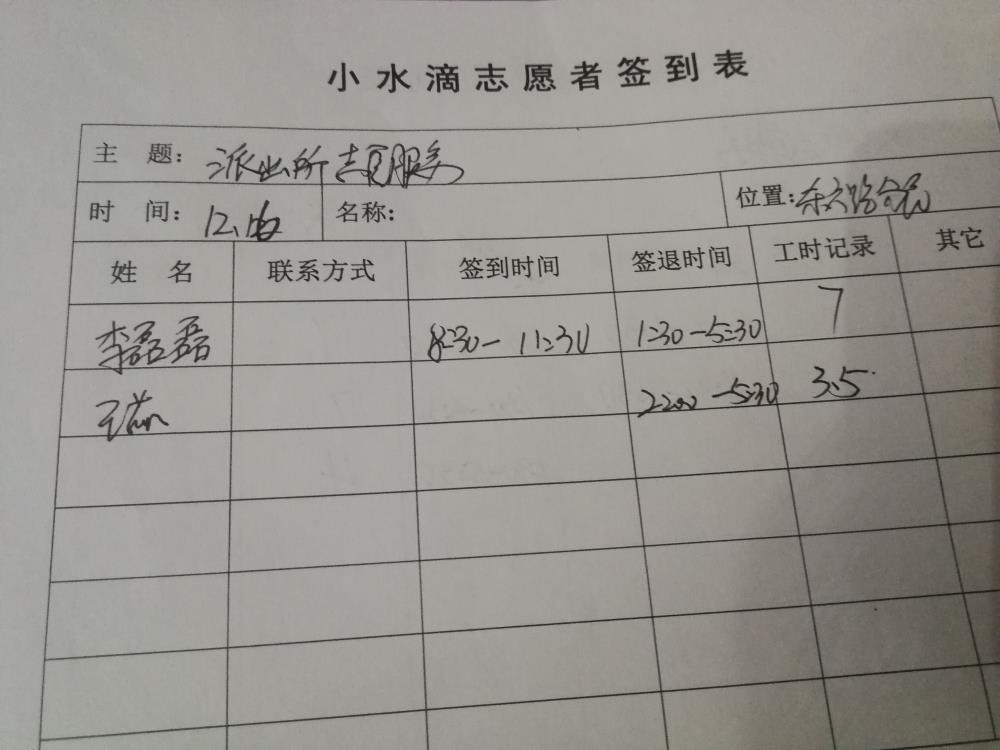 小水滴志愿者签到表
主 题: 派出所志愿服务
时 间: 12.16 名称: 位置:
姓 名 联系方式 签到时间 签退时间 工时记录 其它
李磊磊 8:30-11:30 1:30-5:30 7
2:00-5:30 3.5